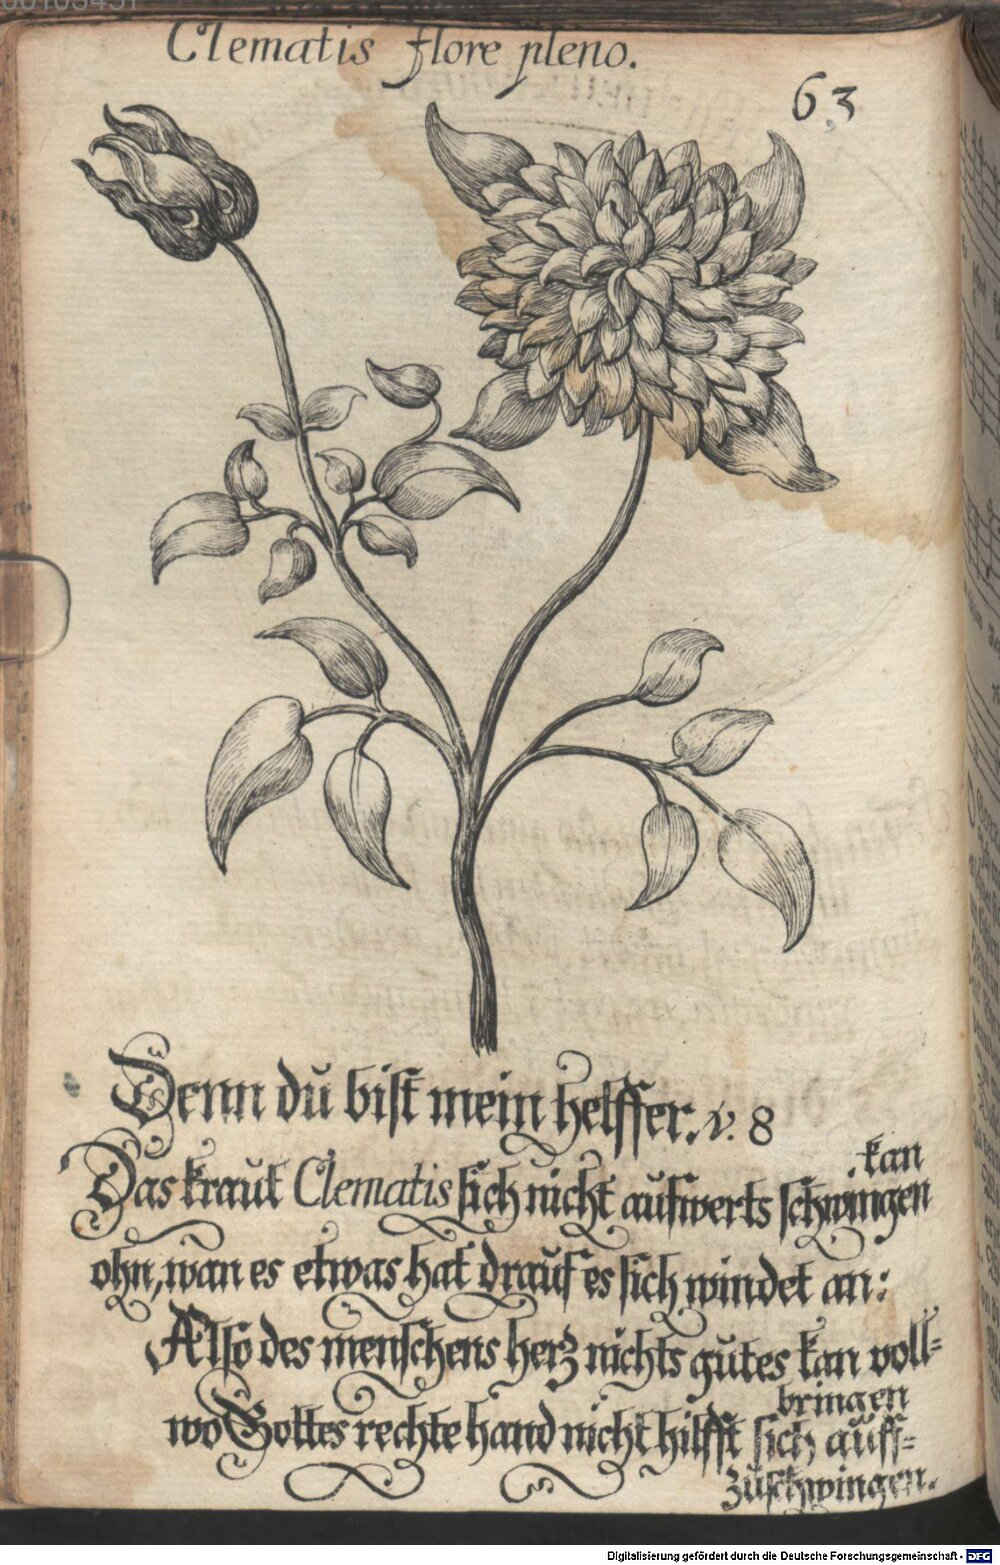 Clematis flore pleno.
63
Denn dŭ bist mein helffer. v. 8
Das kraŭt Clematis sich nicht aŭfwerts schwingen
kan
ohn, wan es etwas hat draŭf es sich windet an:
Also des menschens herz nichts gŭtes kan voll=
bringen
wo Gottes rechte hand nicht hilfft sich aŭff=
zŭschwingen.
Digitalisierung gefördert durch die Deutsche Forschungsgemeinschaft - DFG